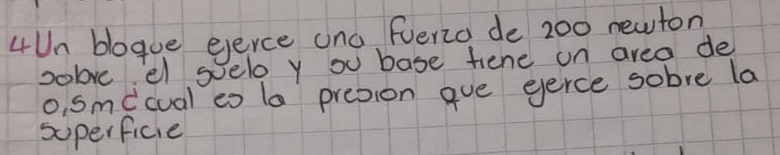 4 Un bloque ejerce una fuerza de 200 newton
sobre el suelo y su base tiene un area de
0,5m ¿cual es la presion que ejerce sobre la
superficie